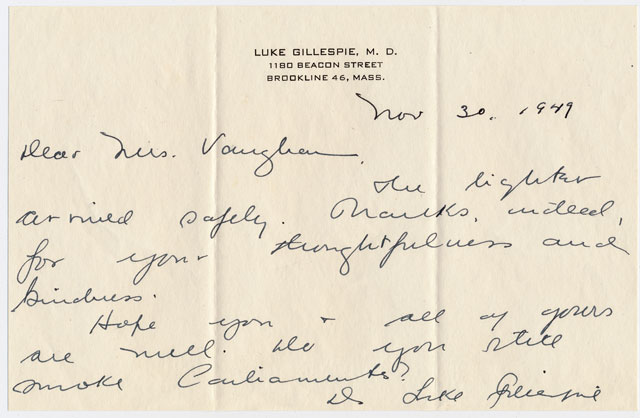 LUKE GILLESPIE, M. D.
1180 BEACON STREET
BROOKLINE 46, MASS.
Nov 30, 1949
Dear Mrs. Vaughan,
The lighter
arrived safely. Thanks, indeed,
for your thoughtfulness and
kindness.
Hope you + all of yours
are well. Do you still
smoke Parliaments?
Dr Luke Gillespie